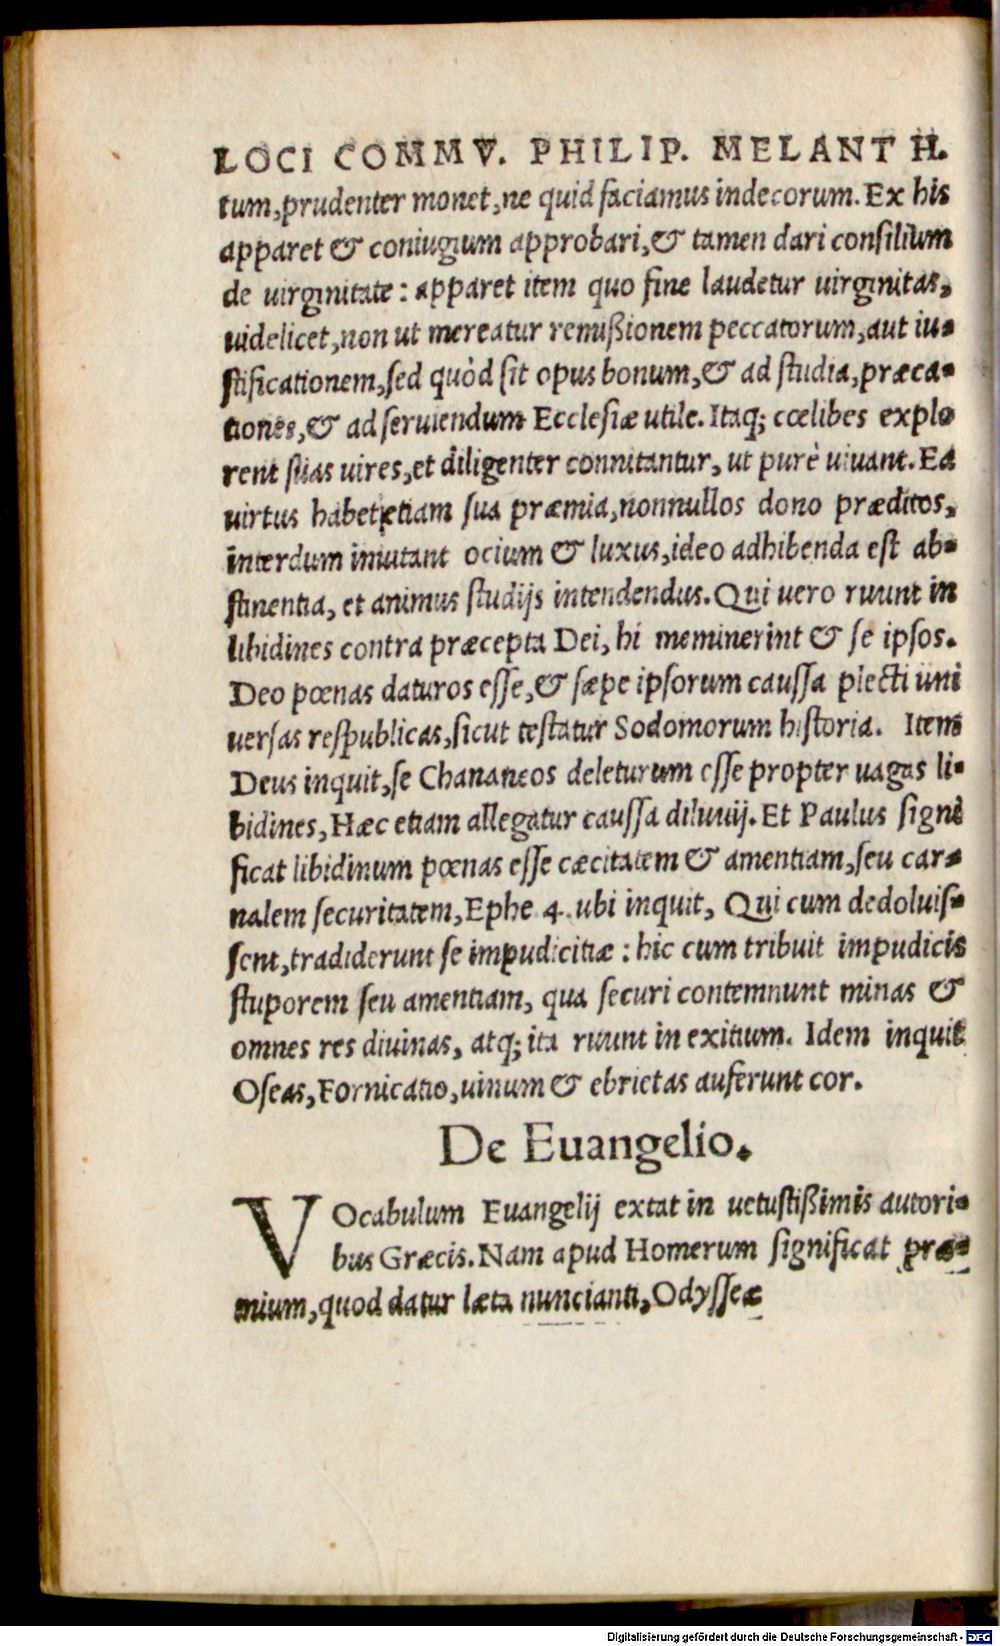 LOCI COMMV. PHILIP. MELANTH.
tum, prudenter monet, ne quid faciamus indecorum. Ex his
apparet & coniugium approbari, & tamen dari consilium
de uirginitate: apparet item quo fine laudetur uirginitas,
uidelicet, non ut mereatur remißionem peccatorum, aut iu-
stificationem, sed quòd sit opus bonum, & ad studia, præca-
tiones, & ad seruiendum Ecclesiæ utile. Itaq; cœlibes explo
rent suas uires, et diligenter connitantur, ut purè uiuant. Ea
uirtus habet etiam sua præmia, nonnullos dono præditos,
interdum inuitant ocium & luxus, ideo adhibenda est ab-
stinentia, et animus studijs intendendus. Qui uero ruunt in
libidines contra præcepta Dei, hi meminerint & se ipsos.
Deo pœnas daturos esse, & sæpe ipsorum caussa plecti uni
uersas respublicas, sicut testatur Sodomorum historia. Item
Deus inquit, se Chananeos deleturum esse propter uagas li-
bidines, Hæc etiam allegatur caussa diluuij. Et Paulus signi
ficat libidinum pœnas esse cæcitatem & amentiam, seu car-
nalem securitatem, Ephe 4. ubi inquit, Qui cum dedoluis-
sent, tradiderunt se impudicitiæ: hic cum tribuit impudicis
stuporem seu amentiam, qua securi contemnunt minas &
omnes res diuinas, atq; ita ruunt in exitium. Idem inquit
Oseas, Fornicatio, uinum & ebrietas auferunt cor.
De Euangelio.
VOcabulum Euangelij extat in uetustißimis autori-
bus Græcis. Nam apud Homerum significat præ-
mium, quod datur læta nuncianti, Odysseæ
Digitalisierung gefördert durch die Deutsche Forschungsgemeinschaft - DFG